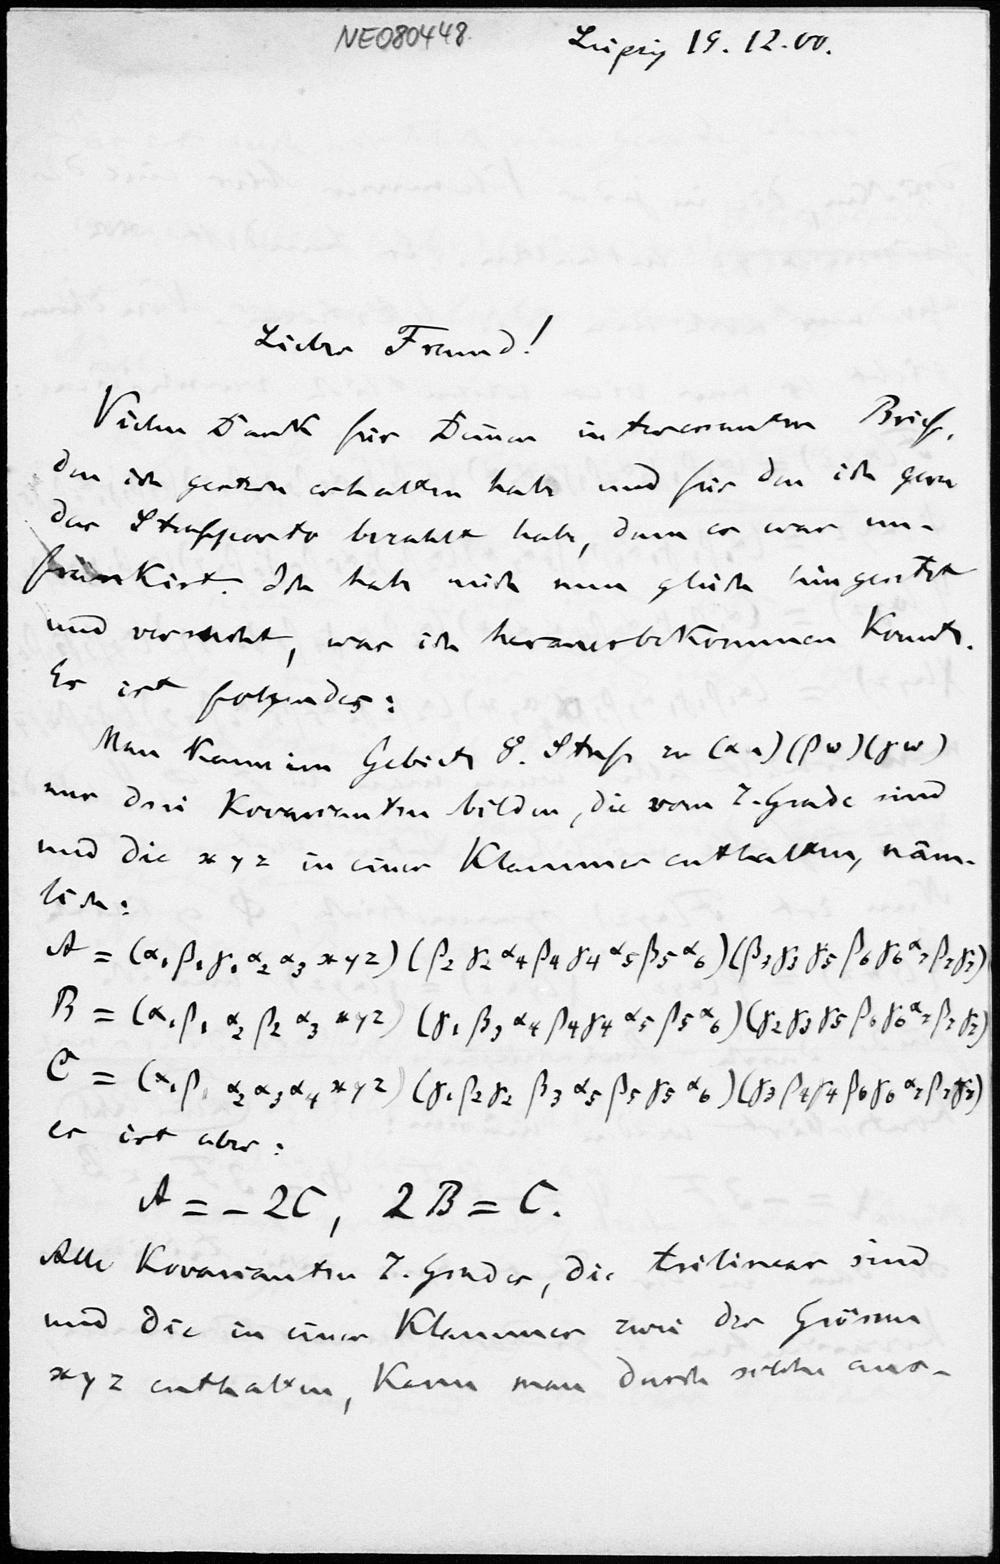 NE080448
Leipzig 19. 12. 00.
Lieber Freund!
Vielen Dank für Deinen interessanten Brief,
den ich gestern erhalten habe und für den ich gern
das Strafporto bezahlt habe, denn er war un-
frankiert. Ich habe mich nun gleich hingesetzt
und versucht, was ich herausbekommen konnte.
Es ist folgendes:
Man kann im Gebiete 8. Stufe zu (α u)(β w)(γ w)
nur drei Kovarianten bilden, die vom 7. Grade sind
und die x y z in einer Klammer enthalten, näm-
lich:
A = (α₁β₁γ₁α₂α₃ x y z)(β₂γ₂α₄β₄γ₄α₅β₅α₆)(β₃γ₃γ₅β₆γ₆α₇β₇γ₇)
B = (α₁β₁α₂β₂α₃ x y z)(γ₁β₃α₄β₄γ₄α₅β₅α₆)(γ₂γ₃γ₅β₆γ₆α₇β₇γ₇)
C = (α₁β₁α₂α₃α₄ x y z)(γ₁β₂γ₂β₃α₅β₅γ₅α₆)(γ₃β₄γ₄β₆γ₆α₇β₇γ₇)
es ist aber:
A = – 2C, 2B = C.
Alle Kovarianten 7. Grades, die trilinear sind
und die in einer Klammer zwei der Grössen
x y z enthalten, kann man durch solche aus-